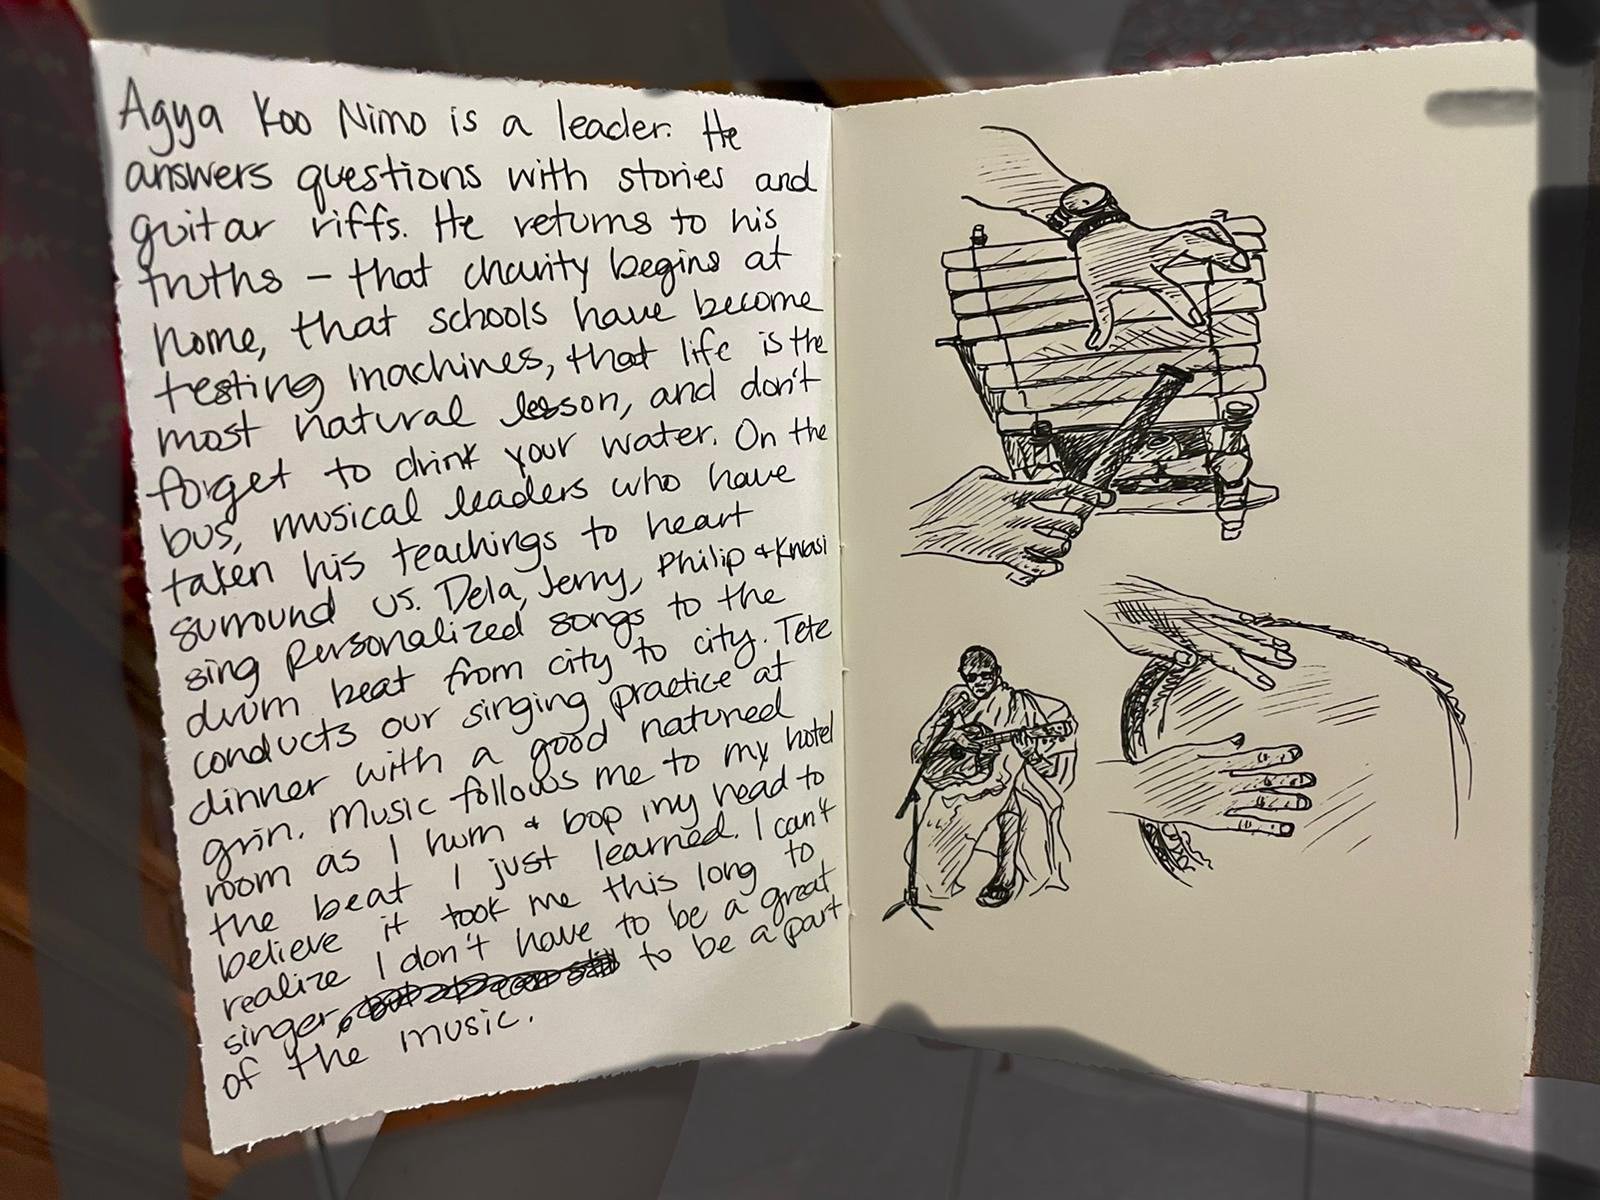 Agya Koo Nimo is a leader. He
answers questions with stories and
guitar riffs. He returns to his
truths - that charity begins at
home, that schools have become
testing machines, that life is the
most natural lesson, and don't
forget to drink your water. On the
bus, musical leaders who have
taken his teachings to heart
surround us. Dela, Jerry, Philip & Kwasi
sing personalized songs to the
drum beat from city to city. Tete
conducts our singing practice at
dinner with a good natured
grin. Music follows me to my hotel
room as I hum & bop my head to
the beat I just learned. I can't
believe it took me this long to
realize I don't have to be a great
singer, to be a part
of the music.